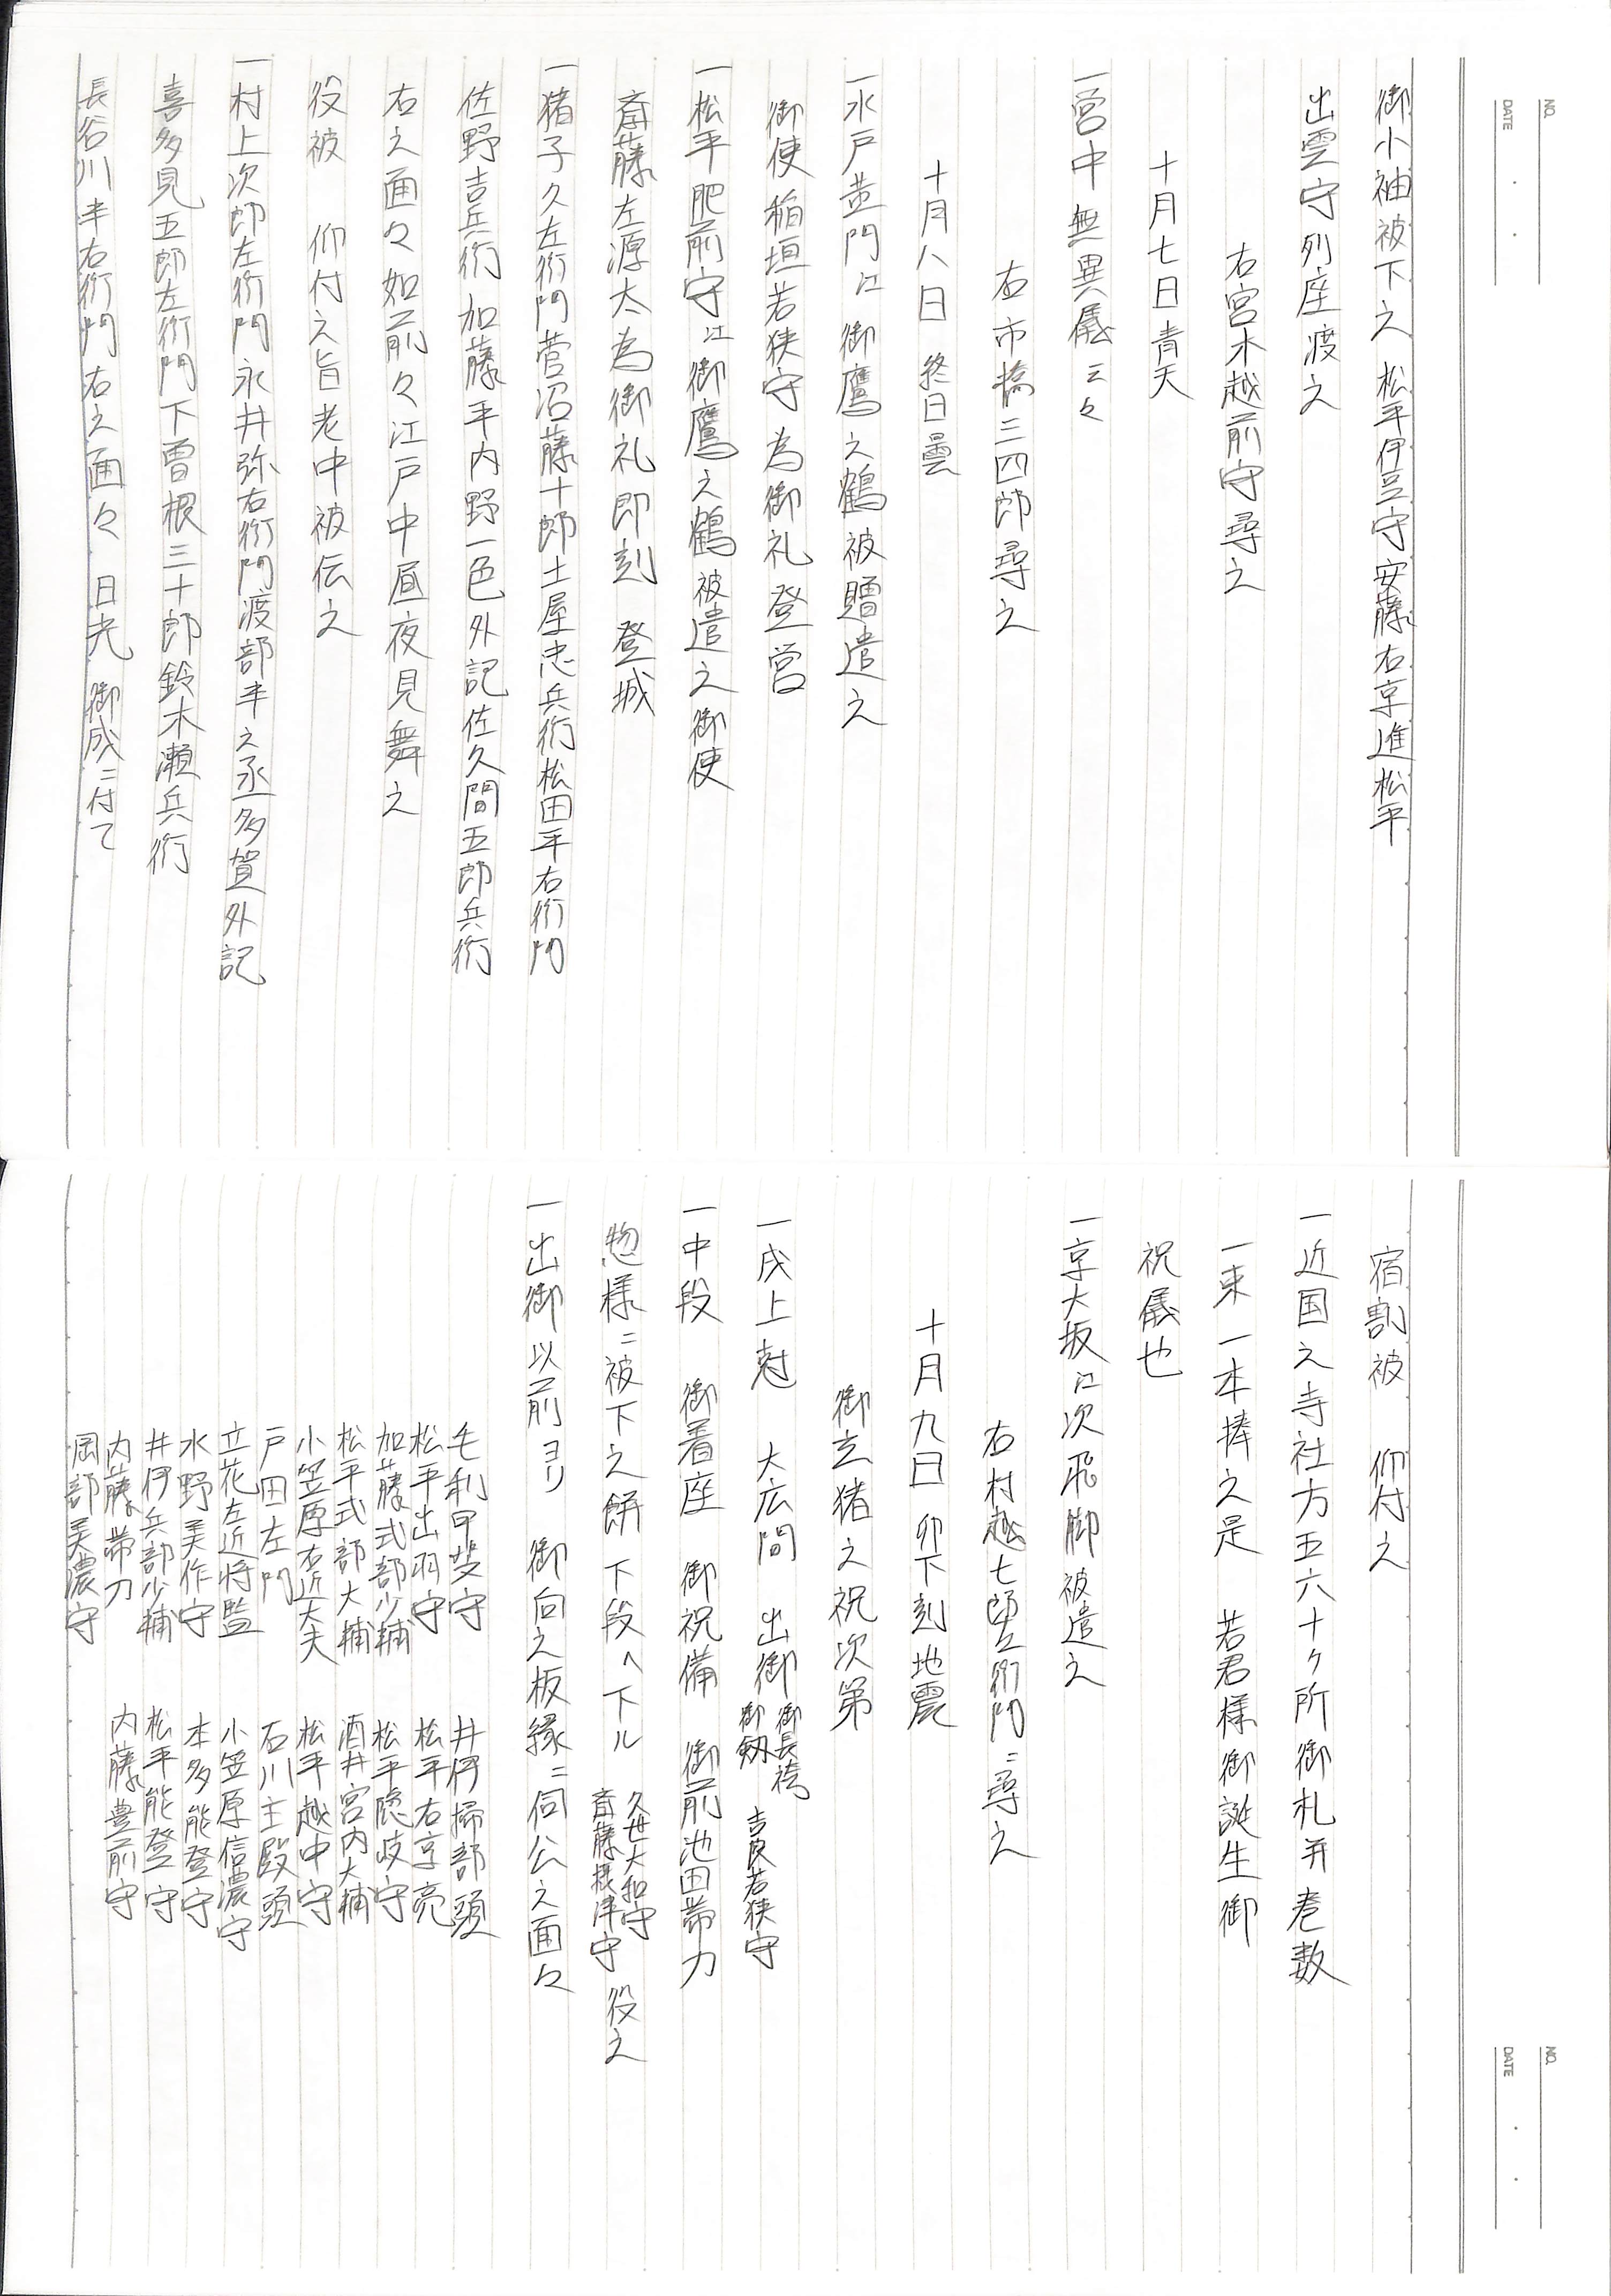 NO.
DATE
御小袖被下之 松平伊豆守安藤右京進松平
出雲守列座渡之
右宮木越前守尋之
十月七日青天
一営中無異儀云々
右市橋三四郎尋之
十月八日 終日曇
一水戸黄門江御鷹之鶴被贈遣之
御使稲垣若狭守為御礼登営
一松平肥前守江御鷹之鶴被遣之御使
斎藤左源太為御礼即刻 登城
一猪子久左衛門菅沼藤十郎土屋忠兵衛松田平右衛門
佐野吉兵衛加藤平内野一色外記佐久間五郎兵衛
右之面々如前々江戸中昼夜見舞之
役被 仰付之旨老中被伝之
一村上次郎左衛門永井弥右衛門渡部半之丞多賀外記
喜多見五郎左衛門下曽根三十郎鈴木瀬兵衛
長谷川半右衛門右之面々 日光 御成ニ付て
NO.
DATE
宿割被 仰付之
一近国之寺社方五六十ヶ所御札并巻数
一束一本捧之是 若君様御誕生御
祝儀也
一京大坂江次飛脚被遣之
右村越七郎左衛門ニ尋之
十月九日 卯下刻地震
御玄猪之祝次第
一戌上尅 大広間 出御 御長袴 御剱 吉良若狭守
一中段 御着座 御祝備 御前池田帯刀
惣様ニ被下之餅下段へ下ル 久世大和守 斎藤摂津守 役之
一出御以前ヨリ 御向之板縁ニ伺公之面々
毛利甲斐守 井伊掃部頭
松平出羽守 松平右京亮
加藤式部少輔 松平隠岐守
松平式部大輔 酒井宮内大輔
小笠原右近大夫 松平越中守
戸田左門 石川主殿頭
立花左近将監 小笠原信濃守
水野美作守 本多能登守
井伊兵部少輔 松平能登守
内藤帯刀 内藤豊前守
岡部美濃守